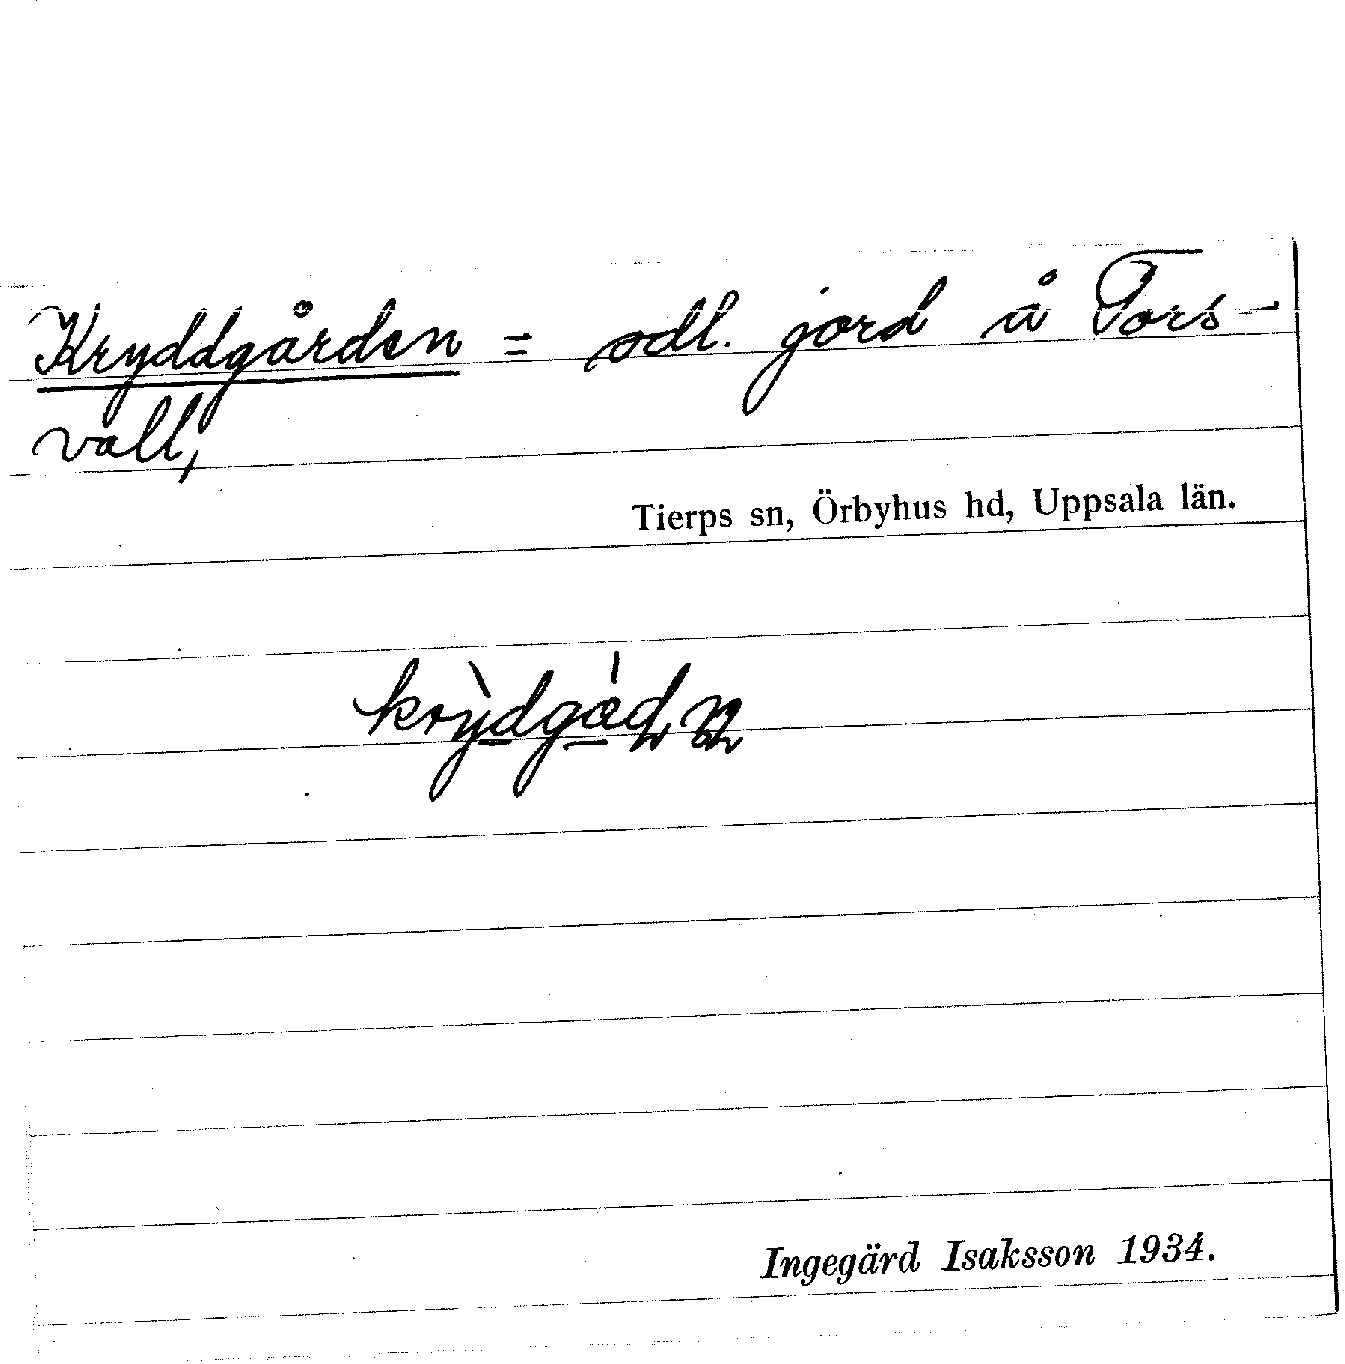 Kryddgården = odl. jord å Tors-
vall,
Tierps sn, Örbyhus hd, Uppsala län.
Ingegärd Isaksson 1934.